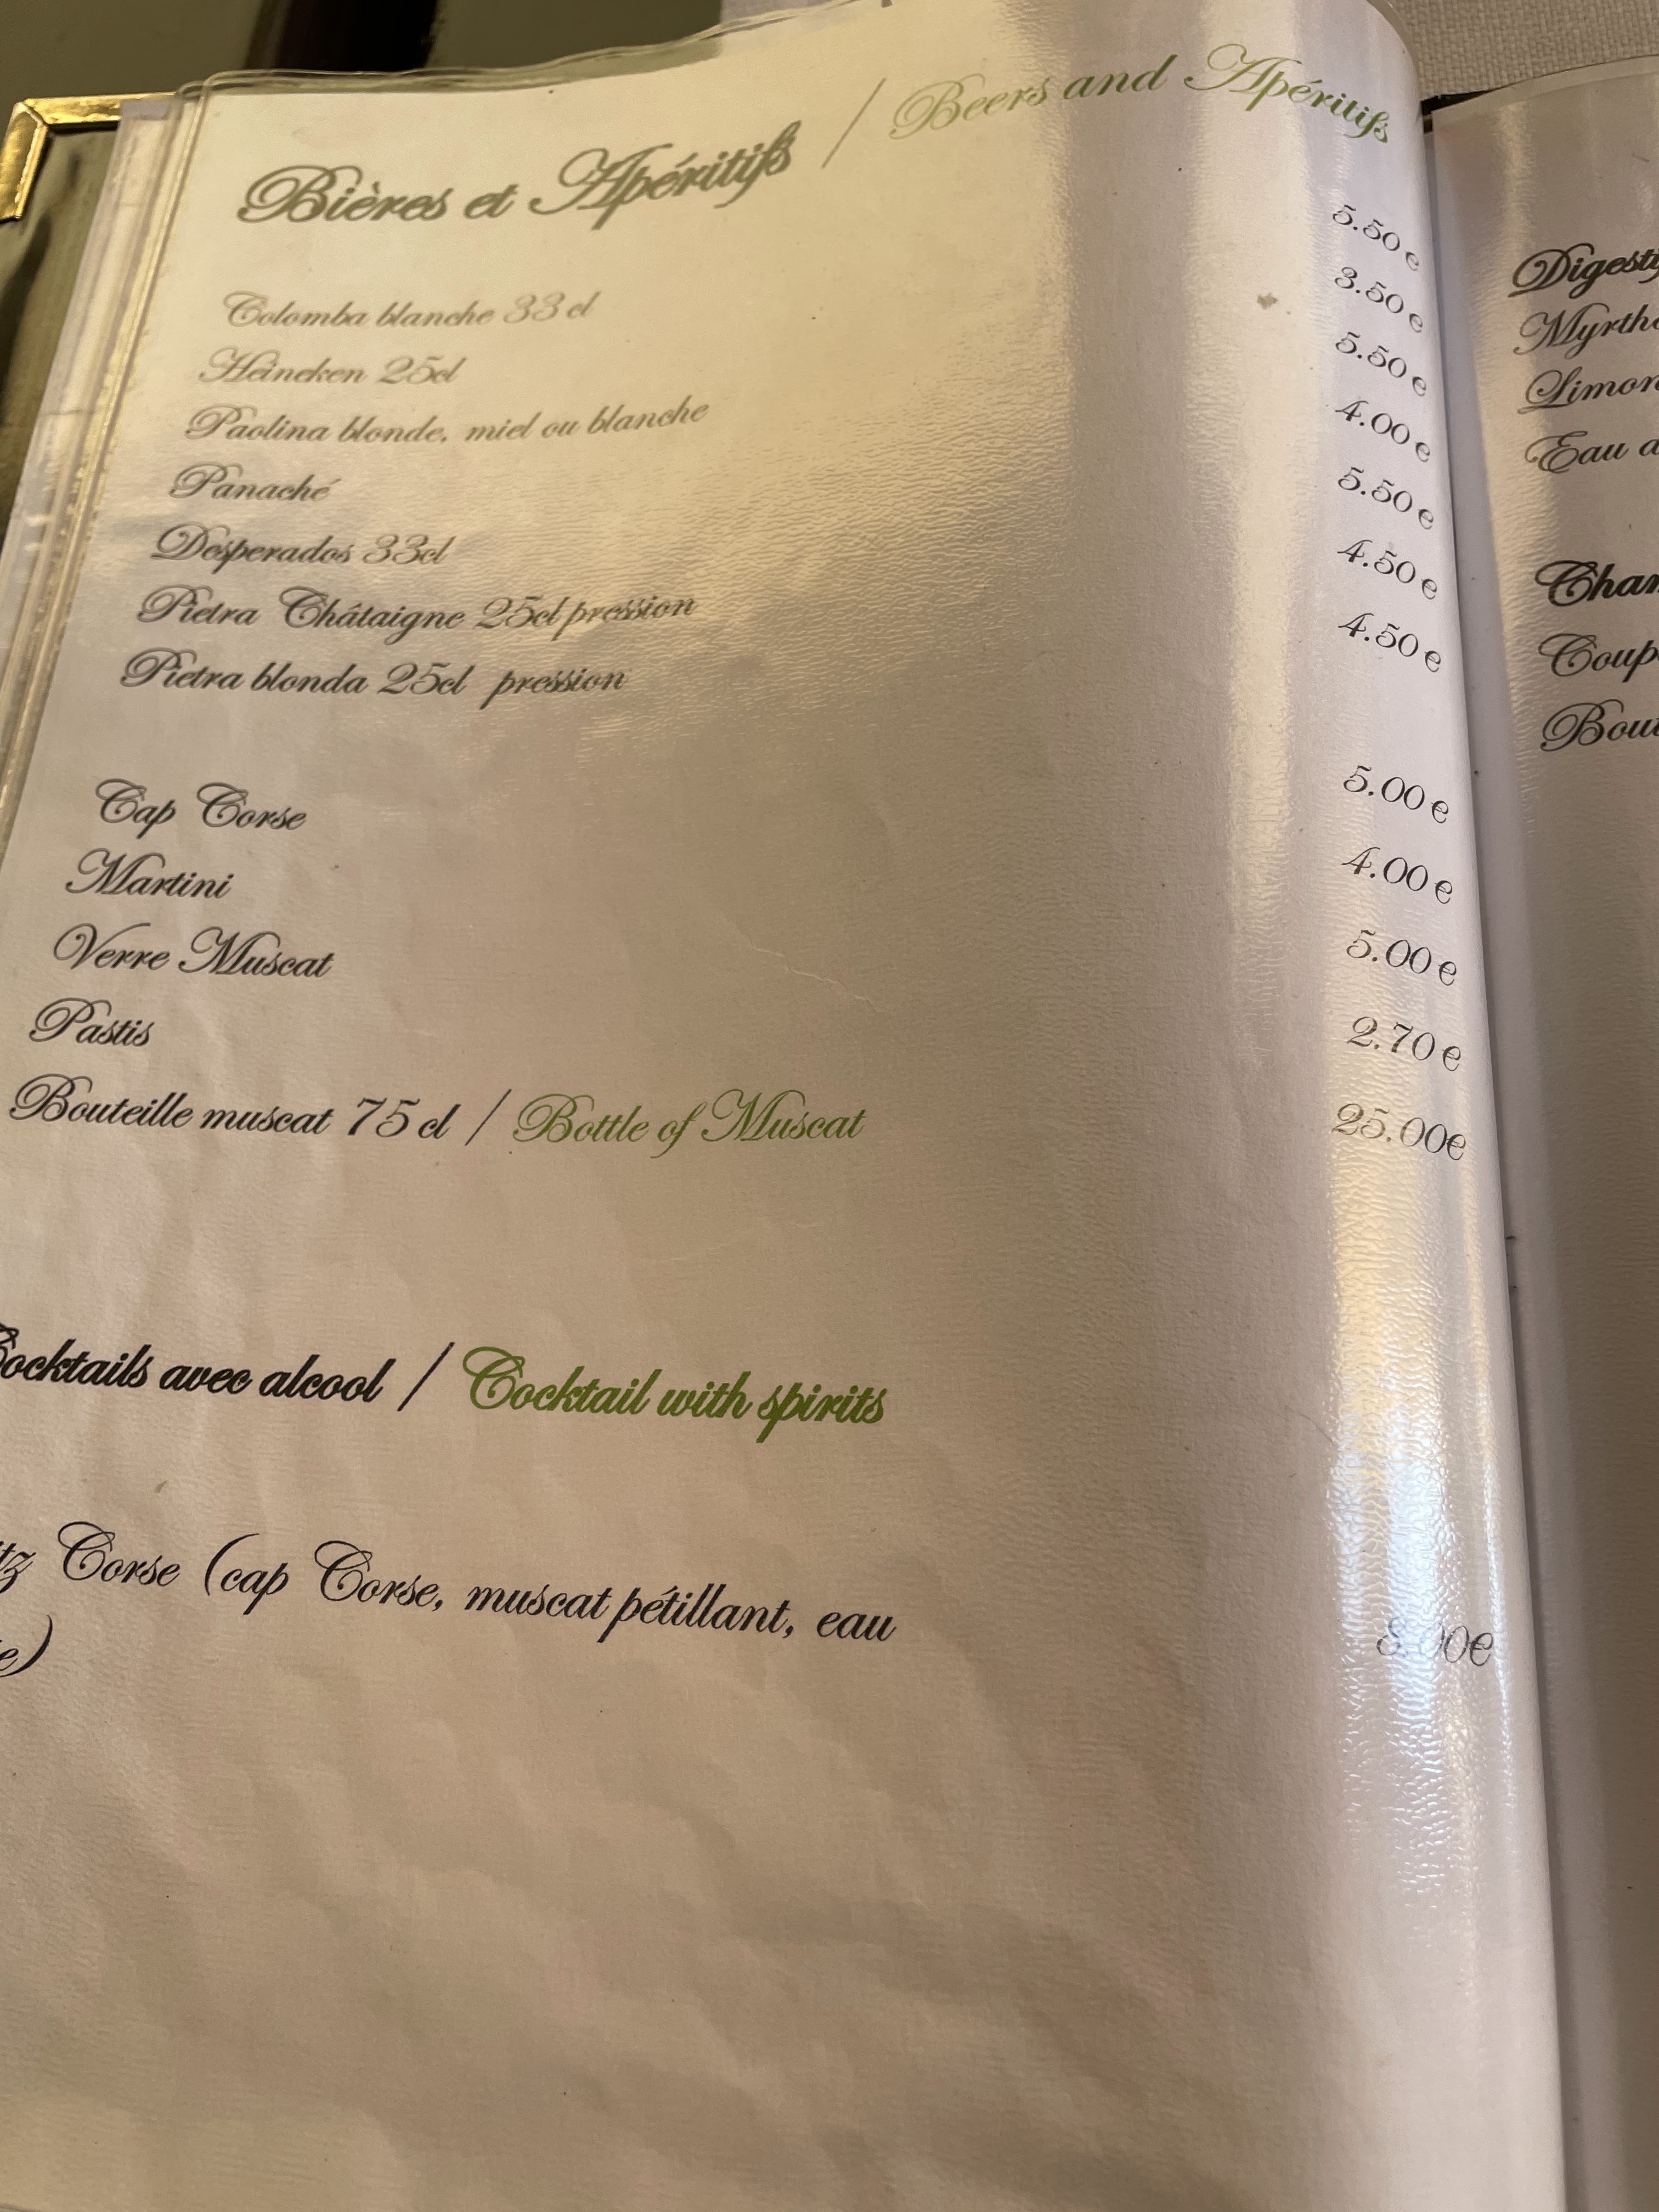 Bières et Apéritifs / Beers and Apéritifs
Colomba blanche 33 cl 5.50 e
Heineken 25cl 3.50 e
Paolina blonde, miel ou blanche 5.50 e
Panaché 4.00 e
Desperados 33cl 5.50 e
Pietra Châtaigne 25cl pression 4.50 e
Pietra blonda 25cl pression 4.50 e
Cap Corse 5.00 e
Martini 4.00 e
Verre Muscat 5.00 e
Pastis 2.70 e
Bouteille muscat 75 cl / Bottle of Muscat 25.00e
Cocktails avec alcool / Cocktail with spirits
tz Corse (cap Corse, muscat pétillant, eau
e)
Digesti
Myrth
Limon
Eau d
Cham
Coup
Bout